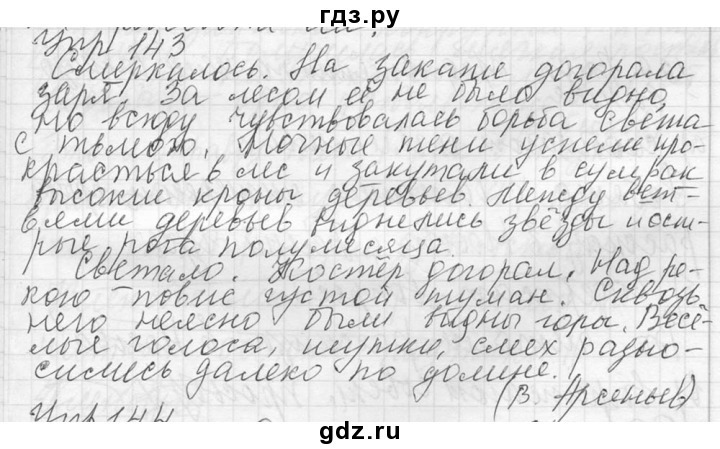 гдз.ру
Упр 143
Смеркалось. На закате догорала
заря. За лесом её не было видно,
но всюду чувствовалась борьба света
с тьмою. Ночные тени успели про-
красться в лес и закутали в сумрак
высокие кроны деревьев. Между вет-
вями деревьев виднелись звёзды и ост-
рые рога полумесяца.
Светало. Костёр догорал. Над ре-
кою повис густой туман. Сквозь
него неясно были видны горы. Весё-
лые голоса, шутки, смех разно-
сились далеко по долине.
(В. Арсеньев)
Упр 144
gdz.ru